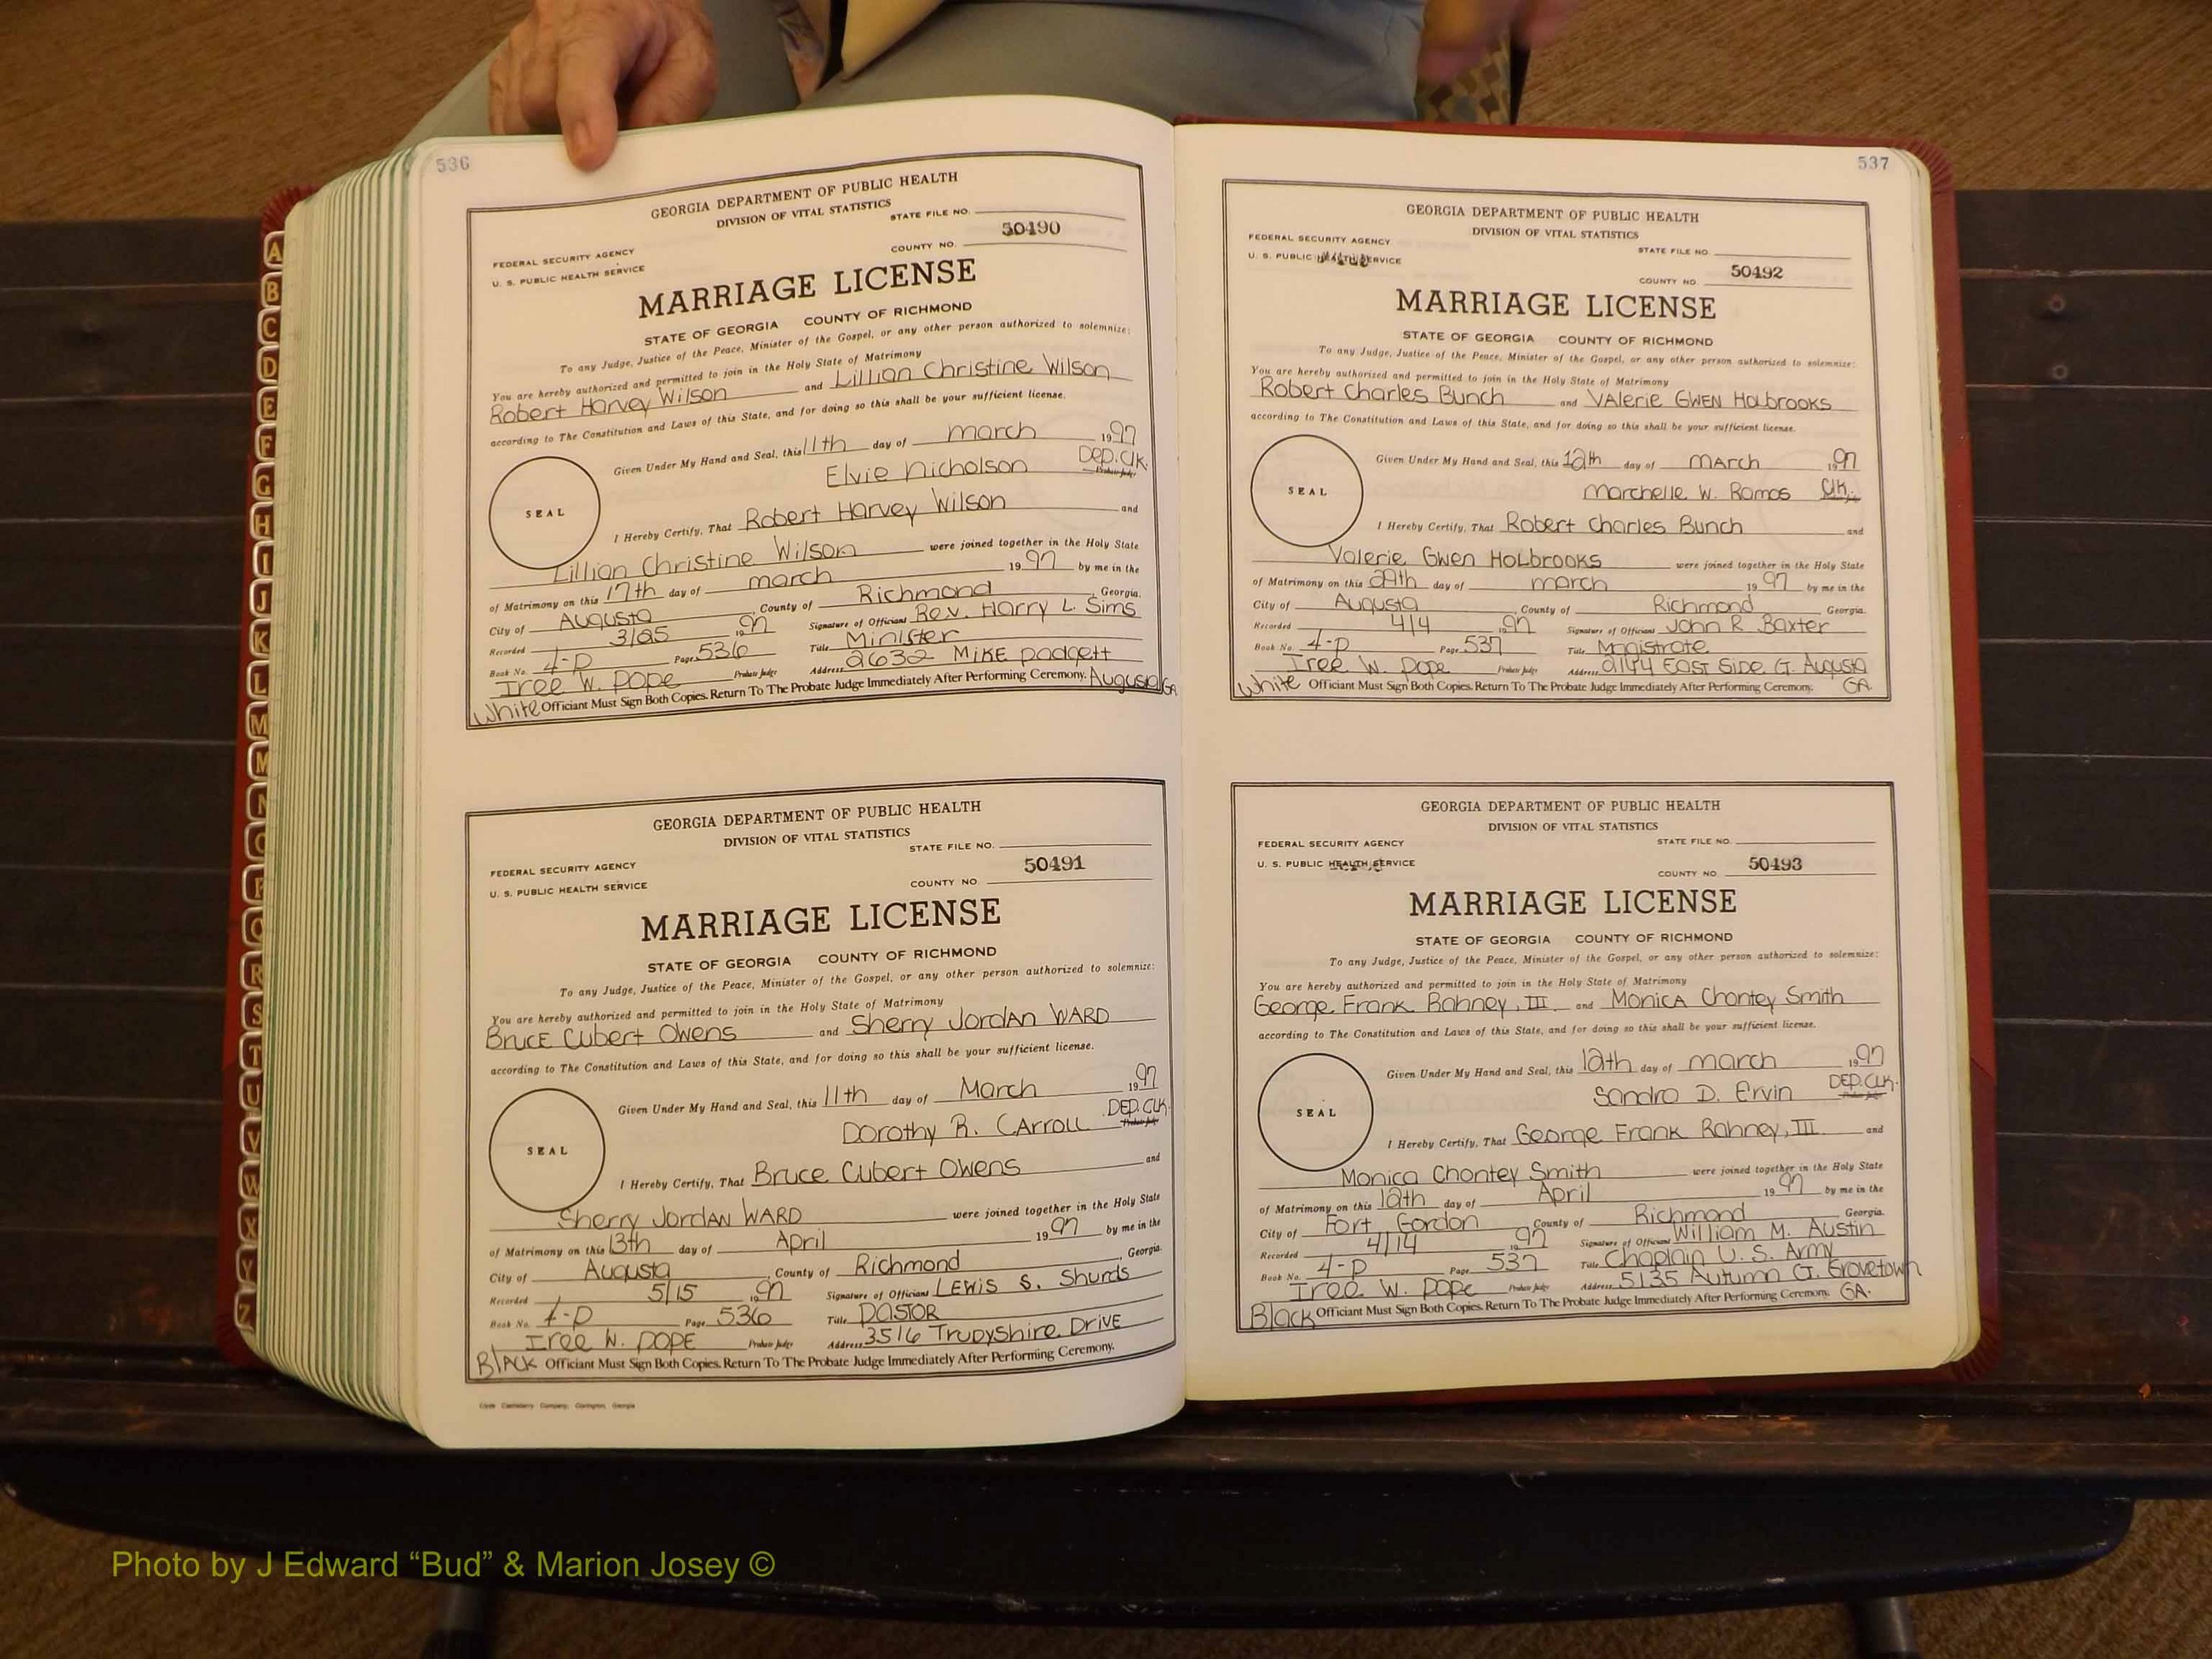 536
GEORGIA DEPARTMENT OF PUBLIC HEALTH
DIVISION OF VITAL STATISTICS
STATE FILE NO.
50490
COUNTY NO.
FEDERAL SECURITY AGENCY
U. S. PUBLIC HEALTH SERVICE
MARRIAGE LICENSE
STATE OF GEORGIA COUNTY OF RICHMOND
To any Judge, Justice of the Peace, Minister of the Gospel, or any other person authorized to solemnize:
You are hereby authorized and permitted to join in the Holy State of Matrimony
Robert Harvey Wilson and Lillian Christine Wilson
according to The Constitution and Laws of this State, and for doing so this shall be your sufficient license.
Given Under My Hand and Seal, this 11th day of march 1997
Elvie Nicholson Dep. Clk. Probate Judge
SEAL
I Hereby Certify, That Robert Harvey Wilson and
Lillian Christine Wilson were joined together in the Holy State
of Matrimony on this 17th day of march 1997 by me in the
City of Augusta, County of Richmond, Georgia.
Recorded 3/25 1997 Signature of Officiant Rev. Harry L. Sims
Book No. 4-P Page 536 Title Minister
Iree W. Pope Probate Judge Address 2632 Mike Padgett
White Officiant Must Sign Both Copies. Return To The Probate Judge Immediately After Performing Ceremony. Augusta GA
GEORGIA DEPARTMENT OF PUBLIC HEALTH
DIVISION OF VITAL STATISTICS
STATE FILE NO.
50491
COUNTY NO.
FEDERAL SECURITY AGENCY
U. S. PUBLIC HEALTH SERVICE
MARRIAGE LICENSE
STATE OF GEORGIA COUNTY OF RICHMOND
To any Judge, Justice of the Peace, Minister of the Gospel, or any other person authorized to solemnize:
You are hereby authorized and permitted to join in the Holy State of Matrimony
Bruce Cubert Owens and Sherry Jordan Ward
according to The Constitution and Laws of this State, and for doing so this shall be your sufficient license.
Given Under My Hand and Seal, this 11th day of March 1997
Dorothy R. Carroll Dep. Clk. Probate Judge
SEAL
I Hereby Certify, That Bruce Cubert Owens and
Sherry Jordan Ward were joined together in the Holy State
of Matrimony on this 13th day of April 1997 by me in the
City of Augusta, County of Richmond, Georgia.
Recorded 5/15 1997 Signature of Officiant Lewis S. Shurds
Book No. 4-P Page 536 Title Pastor
Iree W. Pope Probate Judge Address 3516 Trudyshire Drive
Black Officiant Must Sign Both Copies. Return To The Probate Judge Immediately After Performing Ceremony.
537
GEORGIA DEPARTMENT OF PUBLIC HEALTH
DIVISION OF VITAL STATISTICS
FEDERAL SECURITY AGENCY
STATE FILE NO.
U. S. PUBLIC HEALTH SERVICE
50492
COUNTY NO.
MARRIAGE LICENSE
STATE OF GEORGIA COUNTY OF RICHMOND
To any Judge, Justice of the Peace, Minister of the Gospel, or any other person authorized to solemnize:
You are hereby authorized and permitted to join in the Holy State of Matrimony
Robert Charles Bunch and Valerie Gwen Holbrooks
according to The Constitution and Laws of this State, and for doing so this shall be your sufficient license.
Given Under My Hand and Seal, this 12th day of March 1997
Marchelle W. Ramos Clk.
SEAL
I Hereby Certify, That Robert Charles Bunch and
Valerie Gwen Holbrooks were joined together in the Holy State
of Matrimony on this 29th day of march 1997 by me in the
City of Augusta, County of Richmond Georgia.
Recorded 4/4 1997 Signature of Officiant John R. Baxter
Book No. 4-P Page 537 Title Magistrate
Iree W. Pope Probate Judge Address 2144 East Side Ct. Augusta
White Officiant Must Sign Both Copies. Return To The Probate Judge Immediately After Performing Ceremony. GA.
GEORGIA DEPARTMENT OF PUBLIC HEALTH
DIVISION OF VITAL STATISTICS
FEDERAL SECURITY AGENCY
STATE FILE NO.
U. S. PUBLIC HEALTH SERVICE
50493
COUNTY NO.
MARRIAGE LICENSE
STATE OF GEORGIA COUNTY OF RICHMOND
To any Judge, Justice of the Peace, Minister of the Gospel, or any other person authorized to solemnize:
You are hereby authorized and permitted to join in the Holy State of Matrimony
George Frank Rahney, III and Monica Chantey Smith
according to The Constitution and Laws of this State, and for doing so this shall be your sufficient license.
Given Under My Hand and Seal, this 12th day of march 1997
Sandra D. Ervin Dep. Clk.
SEAL
I Hereby Certify, That George Frank Rahney, III and
Monica Chantey Smith were joined together in the Holy State
of Matrimony on this 12th day of April 1997 by me in the
City of Fort Gordon County of Richmond Georgia.
Recorded 4/14 1997 Signature of Officiant William M. Austin
Book No. 4-P Page 537 Title Chaplain U. S. Army
Iree W. Pope Probate Judge Address 5135 Autumn Ct. Grovetown
Black Officiant Must Sign Both Copies. Return To The Probate Judge Immediately After Performing Ceremony. GA.
A
B
C
D
E
F
G
H
I
J
K
L
M
M
N
O
P
Q
R
S
T
U
V
W
X
Y
Z
Photo by J Edward “Bud” & Marion Josey ©